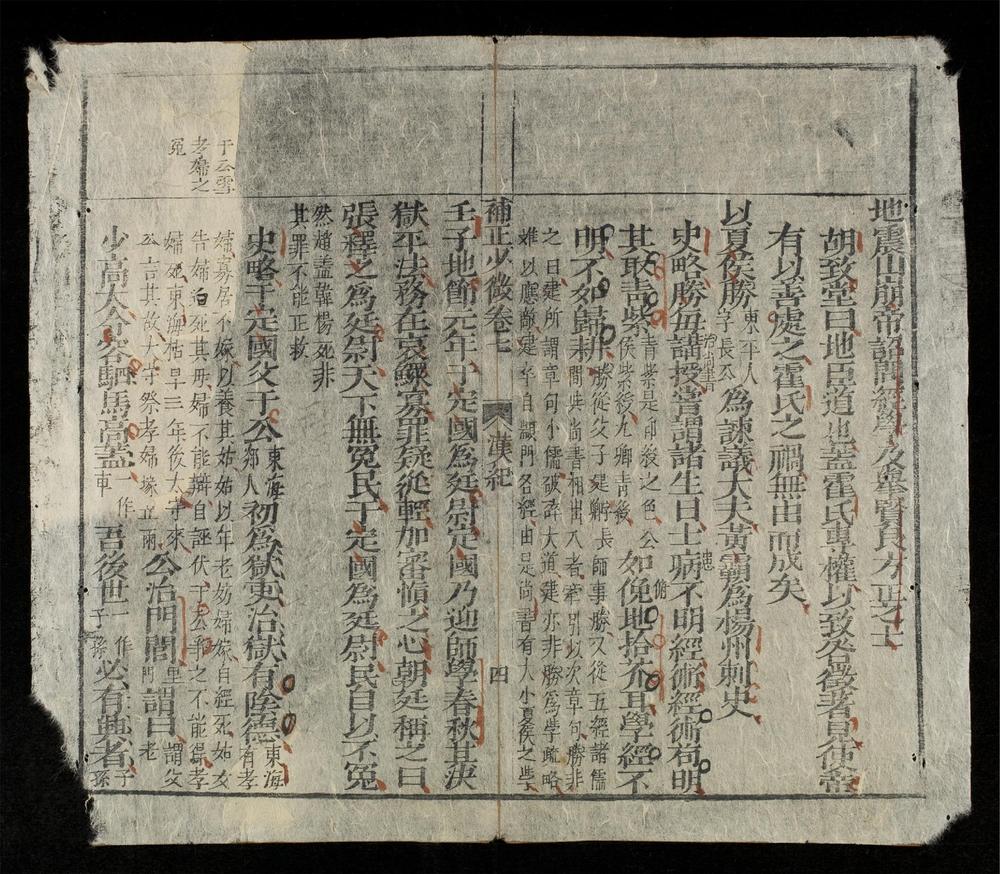 地震山崩帝詔問經學及舉賢良方正之士
胡致堂曰地臣道也蓋霍氏專權以致咎徵著見使帝
有以善處之霍氏之禍無由而成矣
以夏侯勝字長公東平人為諫議大夫黃霸為楊州刺史
史略勝每講授嘗謂諸生曰士病不明經術經術苟明
其取青紫青紫是印綬之色公侯紫綬九卿青綬如俛地拾芥耳學經不
明不如歸耕勝從父子建師事勝又從五經諸儒問與尚書相出入者牽引以次章句勝非
之曰建所謂章句小儒破碎大道建亦非勝為學疏略
難以應敵建卒自顓門名經由是尚書有大小夏侯之學
補正少微卷七 漢紀 四
壬子地節元年于定國為廷尉定國乃迎師學春秋其決
獄平法務在哀鰥寡罪疑從輕加審慎之心朝廷稱之曰
張釋之為廷尉天下無冤民于定國為廷尉民自以不冤
然趙蓋韓楊死非
其罪不能正救
史略于定國父于公東海郯人初為獄吏治獄有陰德東海有孝
婦寡居不嫁以養其姑姑以年老妨婦嫁自經死姑女
告婦迫死其母婦不能辨自誣伏于公爭之不能得孝
婦死東海枯旱三年後太守來
公言其故太守祭孝婦塚立雨公治門閭里門謂曰謂父老
少高大令容駟馬高蓋車吾後世子孫必有興者子孫
于公雪
孝婦之
冤